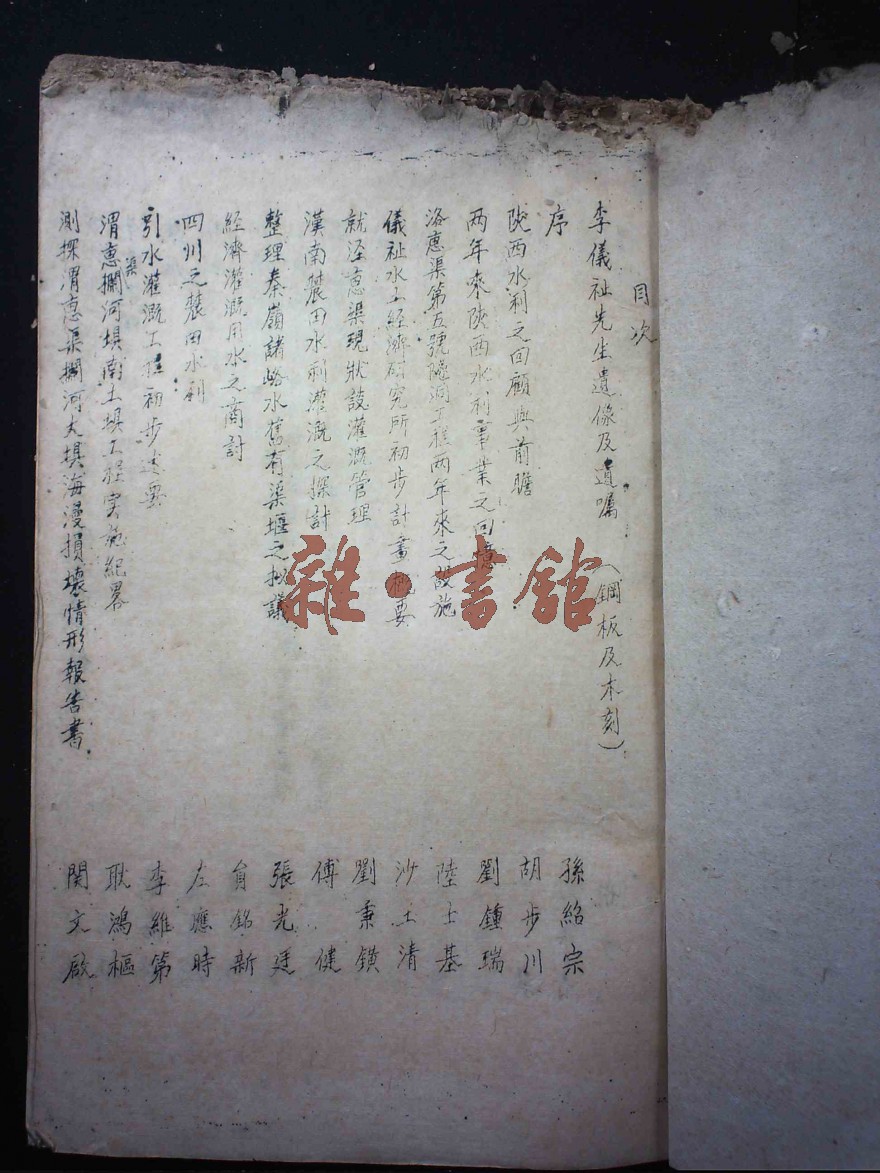 目次
李儀祉先生遺像及遺囑 (銅板及木刻)
序 孫紹宗
陝西水利之回顧與前瞻 胡步川
两年來陝西水利事業之回憶 劉鍾瑞
洛惠渠第五號隧洞工程两年來之設施 陸士基
儀祉水工經濟研究所初步計畫概要 沙玉清
就涇惠渠現狀談灌溉管理 劉秉鐄
漢南農田水利灌溉之探討 傅健
整理秦嶺諸峪水舊有渠堰之擬議 張光廷
經濟灌溉用水之商討 負銘新
四川之農田水利 左應時
引水灌溉工程初步述要 李維第
渭惠渠攔河壩南土壩工程实施紀畧 耿鴻樞
測探渭惠渠攔河大壩海漫損壞情形報告書 関文啟
雜·書館